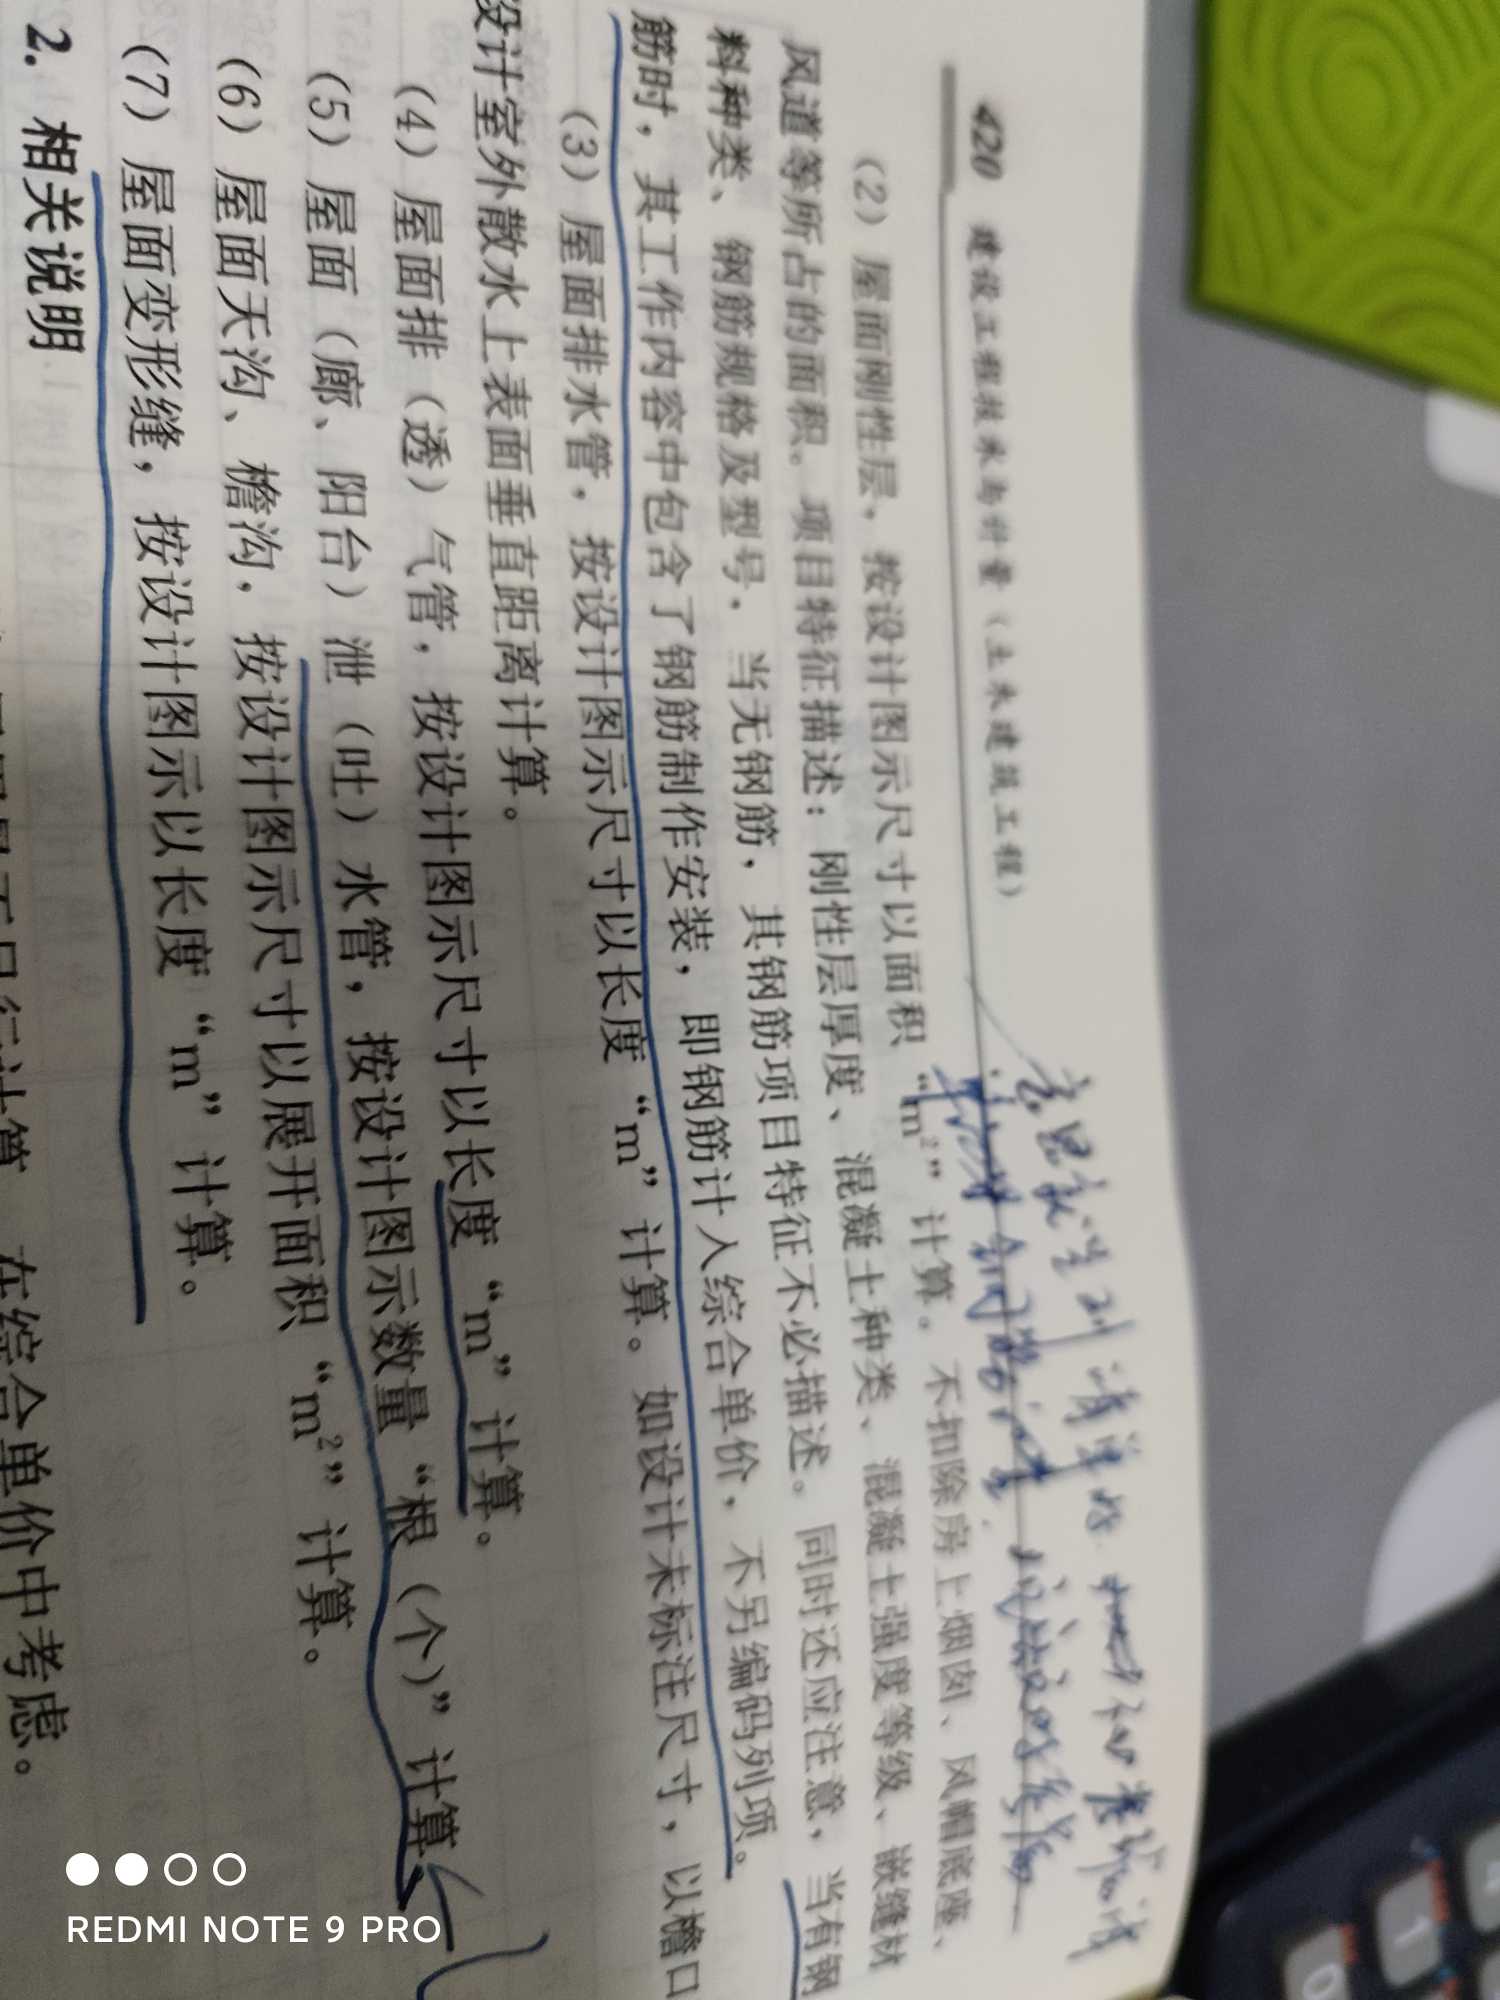 420 建设工程技术与计量（土木建筑工程）
（2）屋面刚性层，按设计图示尺寸以面积“m²”计算。不扣除房上烟囱、风帽底座、
风道等所占的面积。项目特征描述：刚性层厚度、混凝土种类、混凝土强度等级、嵌缝材
料种类、钢筋规格及型号，当无钢筋，其钢筋项目特征不必描述。同时还应注意，当有钢
筋时，其工作内容中包含了钢筋制作安装，即钢筋计入综合单价，不另编码列项。
（3）屋面排水管，按设计图示尺寸以长度“m”计算。如设计未标注尺寸，以檐口
设计室外散水上表面垂直距离计算。
（4）屋面排（透）气管，按设计图示尺寸以长度“m”计算。
（5）屋面（廊、阳台）泄（吐）水管，按设计图示数量“根（个）”计算
（6）屋面天沟、檐沟，按设计图示尺寸以展开面积“m²”计算。
（7）屋面变形缝，按设计图示以长度“m”计算。
2. 相关说明
计算，在综合单价中考虑。
REDMI NOTE 9 PRO